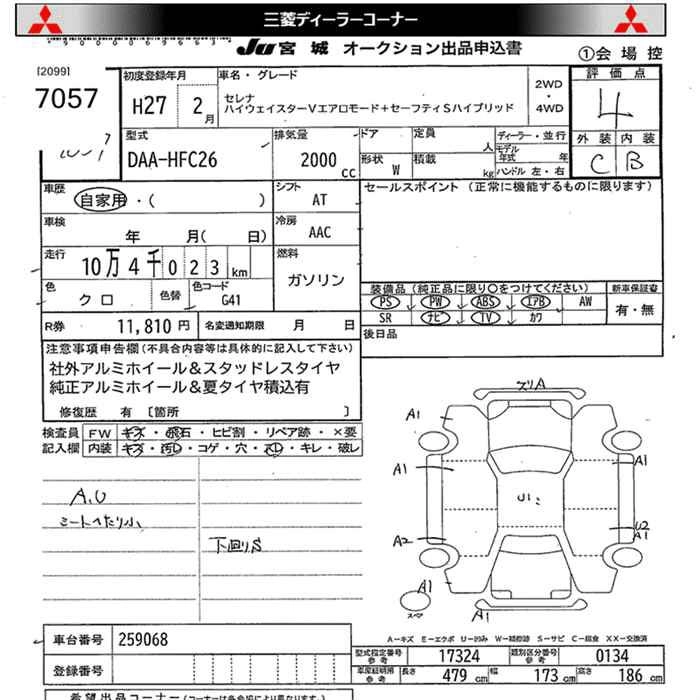 三菱ディーラーコーナー
JU 宮城 オークション出品申込書
①会場控
[2099]
7057
初度登録年月
H27 2月
車名・グレード
セレナ
ハイウェイスターVエアロモード+セーフティSハイブリッド
2WD
・
4WD
評価点
4
外装 内装
C B
型式
DAA-HFC26
排気量
2000 cc
ドア 定員 人
形状 W 積載 kg
ディーラー・並行
モデル年式 年
ハンドル 左・右
車歴
自家用・( )
シフト
AT
セールスポイント (正常に機能するものに限ります)
車検
年 月( 日)
冷房
AAC
走行
10万4千023km
燃料
ガソリン
色
クロ
色替
色コード
G41
装備品 (純正品に限り〇をつけてください)
新車保証書
PS PW ABS エアB AW
SR ナビ TV カワ
有・無
R券 11,810円
名変通知期限 月 日
後日品
注意事項申告欄 (不具合内容等は具体的に記入して下さい)
社外アルミホイール&スタッドレスタイヤ
純正アルミホイール&夏タイヤ積込有
修復歴 有 [箇所 ]
検査員記入欄
FW キズ・飛石・ヒビ割・リペア跡・×要
内装 キズ・汚レ・コゲ・穴・スレ・キレ・破レ
A.U
シートヘたり小
下廻りS
スリA
A1
A1
A1
A1
U1
A2
U2
A1
A1
スペア
A1
A-キズ E-エクボ U-凹み W-補修跡 S-サビ C-腐食 XX-交換済
車台番号 259068
型式指定番号 参考 17324
類別区分番号 参考 0134
登録番号
車庫証明用 参考
長さ 479 cm 幅 173 cm 高さ 186 cm
希望出品コーナー (コーナーは各会場により異なります。)